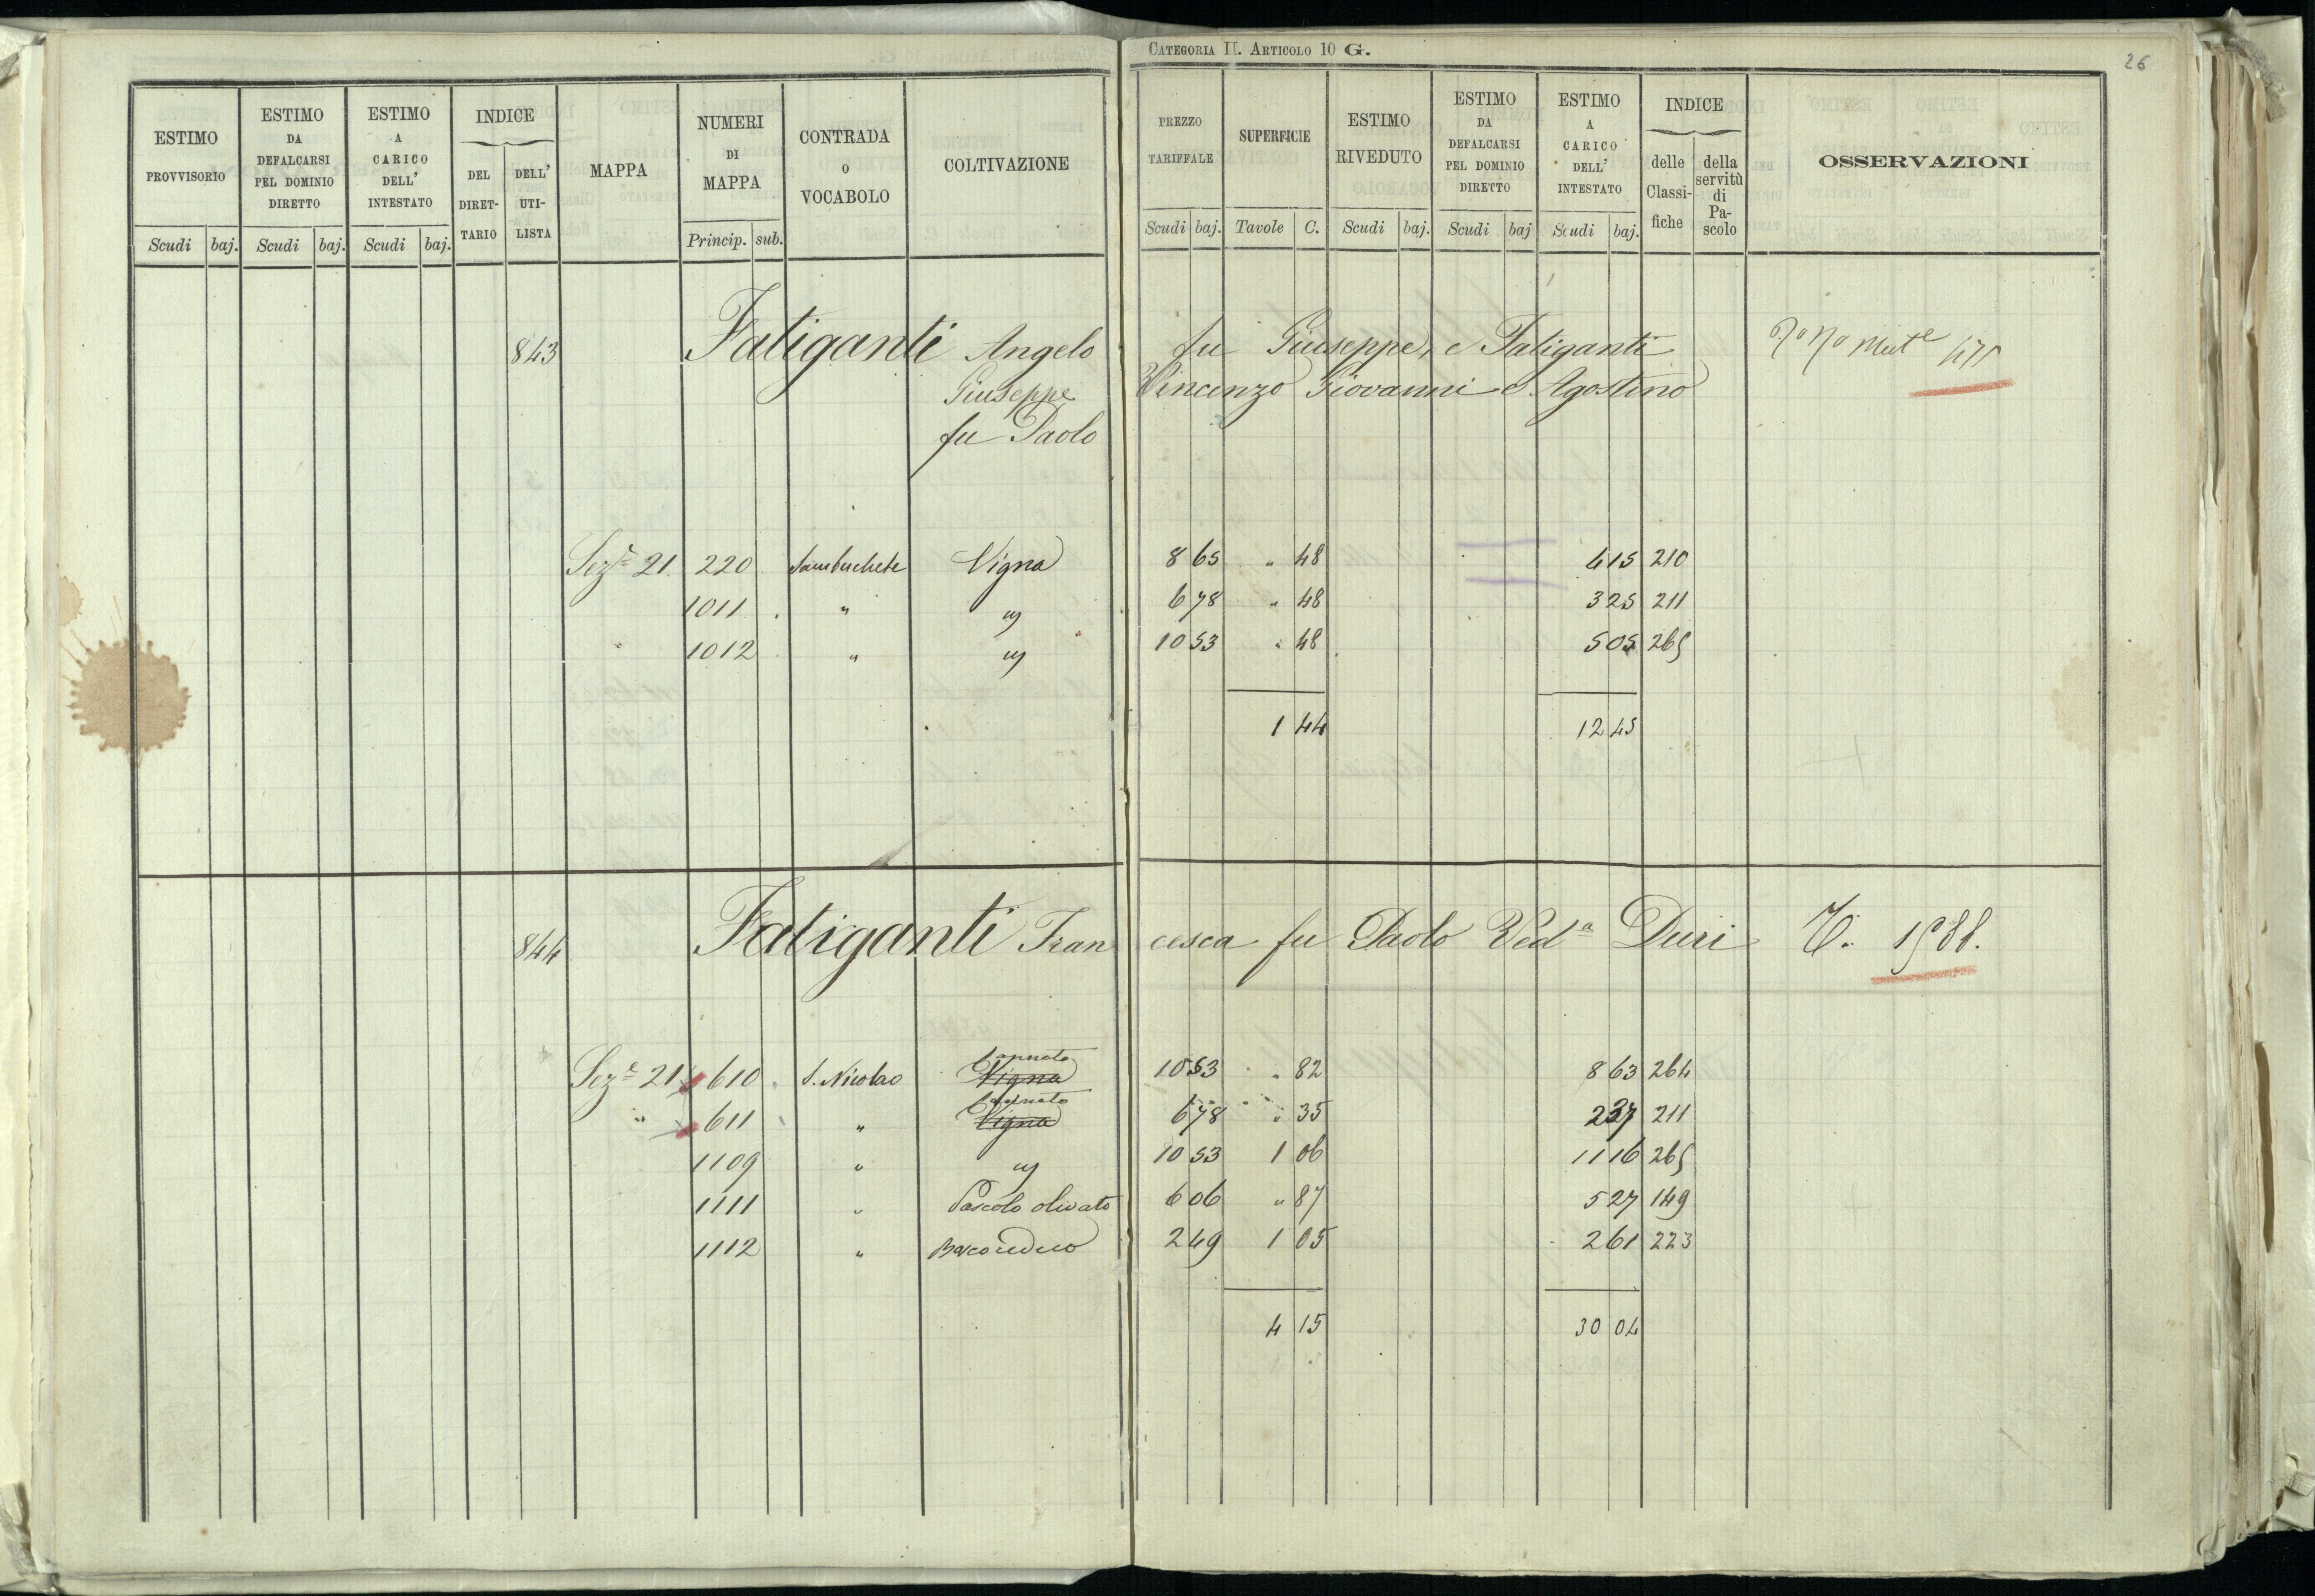 CATEGORIA II. ARTICOLO 10 G.
26
ESTIMO PROVVISORIO Scudi baj.
ESTIMO DA DEFALCARSI PEL DOMINIO DIRETTO Scudi baj.
ESTIMO A CARICO DELL' INTESTATO Scudi baj.
INDICE DEL DIRETTARIO DELL' UTILISTA
MAPPA
NUMERI DI MAPPA Princip. sub.
CONTRADA O VOCABOLO
COLTIVAZIONE
PREZZO TARIFFALE Scudi baj.
SUPERFICIE Tavole C.
ESTIMO RIVEDUTO Scudi baj.
ESTIMO DA DEFALCARSI PEL DOMINIO DIRETTO Scudi baj
ESTIMO A CARICO DELL' INTESTATO Scudi baj.
INDICE delle Classifiche della servitù di Pascolo
OSSERVAZIONI
843 Fatiganti Angelo fu Giuseppe, e Fatiganti
Giuseppe Vincenzo Giovanni e Agostino
fu Paolo
Sez.e 21 220 Sambuchete Vigna 8 65 " 48 4 15 210
1011 " " 6 78 " 48 3 25 211
" 1012 " " 10 53 " 48 5 05 265
1 44 12 45
844 Fatiganti Francesca fu Paolo Ved.a Duri
Sez.e 21 610 S. Nicolao Vigna 10 53 " 82 8 63 264
" 611 " Vigna 6 78 " 35 2 37 211
1109 " " 10 53 1 06 11 16 265
1111 " Pascolo olivato 6 06 " 87 5 27 149
1112 " Bosco ceduo 2 49 1 05 2 61 223
4 15 30 04